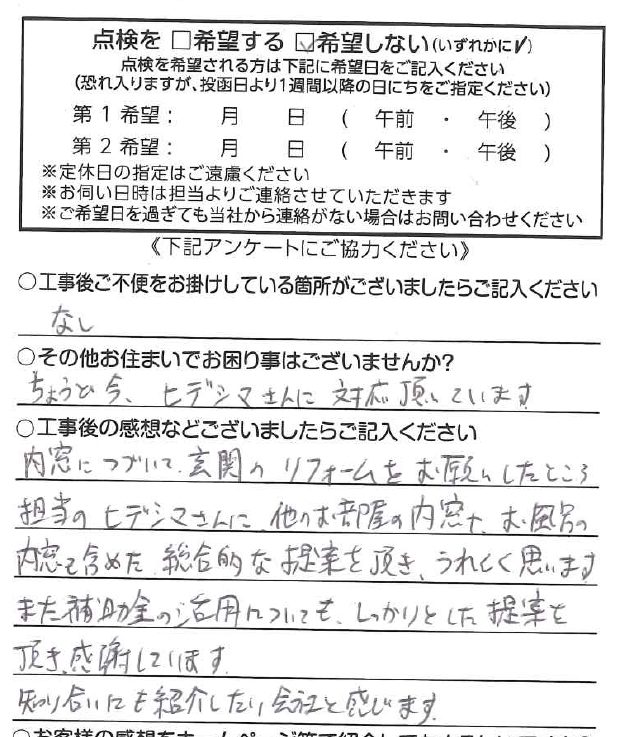 点検を □希望する ☑希望しない(いずれかに✓)
点検を希望される方は下記に希望日をご記入ください
(恐れ入りますが、投函日より1週間以降の日にちをご指定ください)
第1希望: 月 日 ( 午前 ・ 午後 )
第2希望: 月 日 ( 午前 ・ 午後 )
※定休日の指定はご遠慮ください
※お伺い日時は担当よりご連絡させていただきます
※ご希望日を過ぎても当社から連絡がない場合はお問い合わせください
《下記アンケートにご協力ください》
○工事後ご不便をお掛けしている箇所がございましたらご記入ください
なし
○その他お住まいでお困り事はございませんか?
ちょうど今、ヒデシマさんに対応頂いています
○工事後の感想などございましたらご記入ください
内窓につづいて、玄関のリフォームをお願いしたところ
担当のヒデシマさんに、他のお部屋の内窓や、お風呂の
内窓も含めた、総合的な提案を頂き、うれしく思います
また補助金の活用についても、しっかりとした提案を
頂き、感謝しています。
知り合いにも紹介したい会社と感じます。